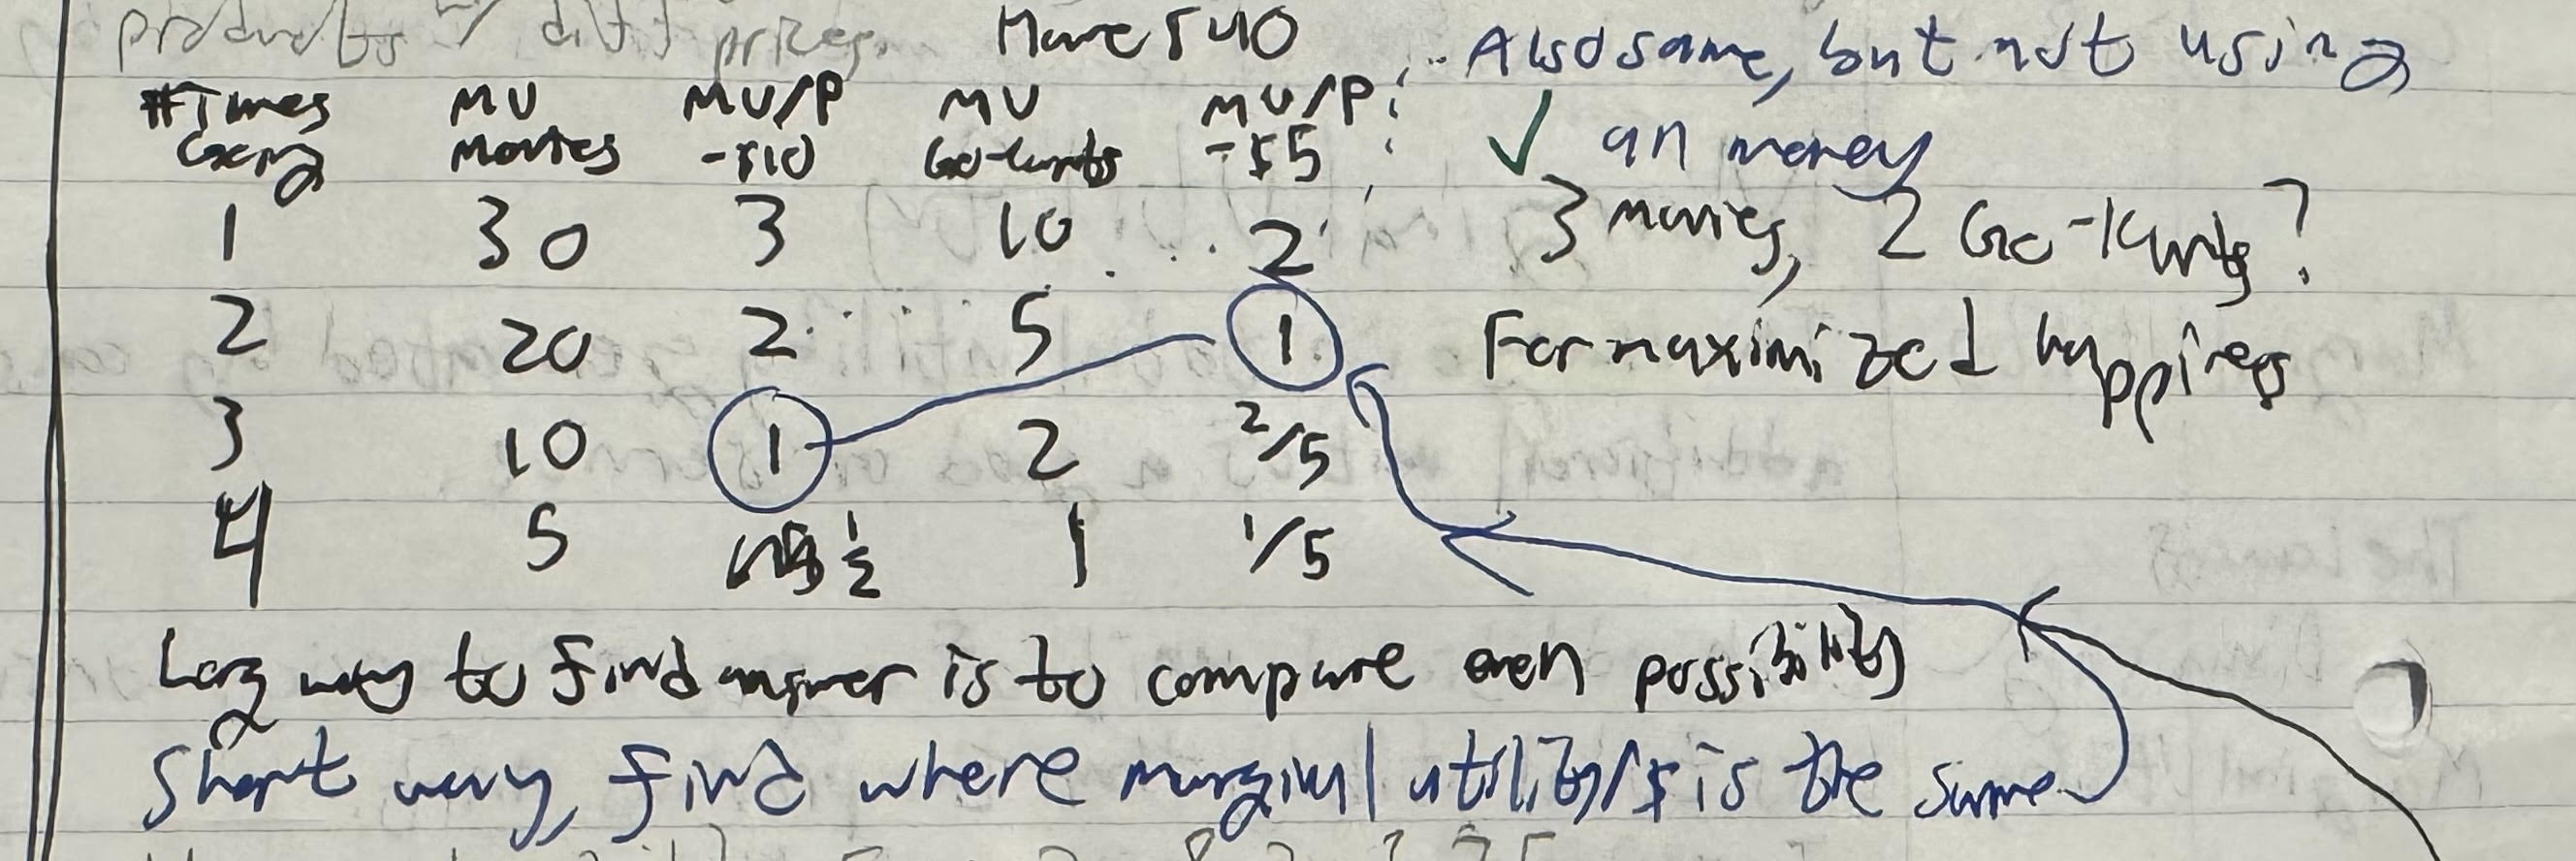 products w/ diff prices. Have $40
Also same, but not using
all money
#Times Going | MU Movies | MU/P -$10 | MU Go-karts | MU/P -$5
1 30 3 10 2
2 20 2 5 1
3 10 1 2 2/5
4 5 1/2 1 1/5
✓
3 movies, 2 Go-Karts?
For maximized happiness
Long way to find answer is to compare even possibility
Short way, find where marginal utility/$ is the same